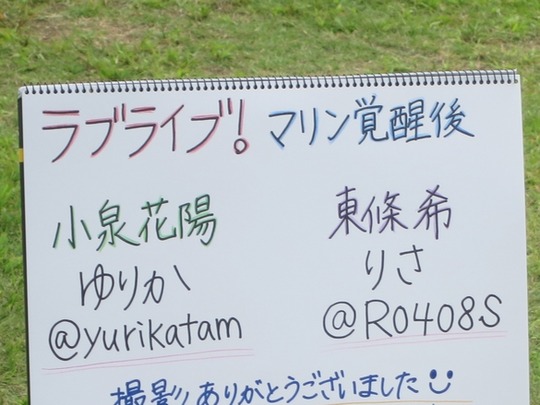 ラブライブ! マリン覚醒後
小泉花陽 東條希
ゆりか りさ
@yurikatam @R0408S
撮影!! ありがとうございました